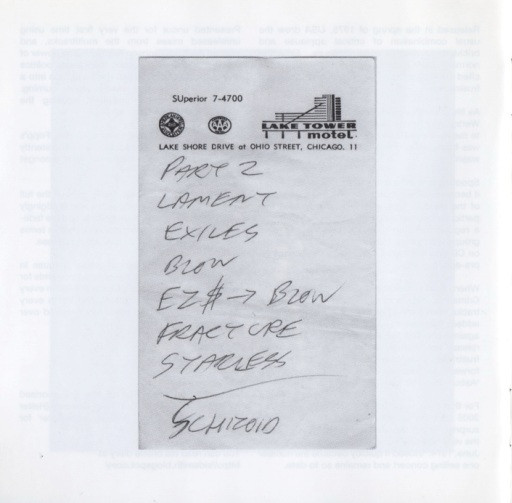 SUperior 7-4700
LAKE TOWER
motel
LAKE SHORE DRIVE at OHIO STREET, CHICAGO. 11
PART 2
LAMENT
EXILES
BLOW
EZ$ → BLOW
FRACTURE
STARLESS
SCHIZOID